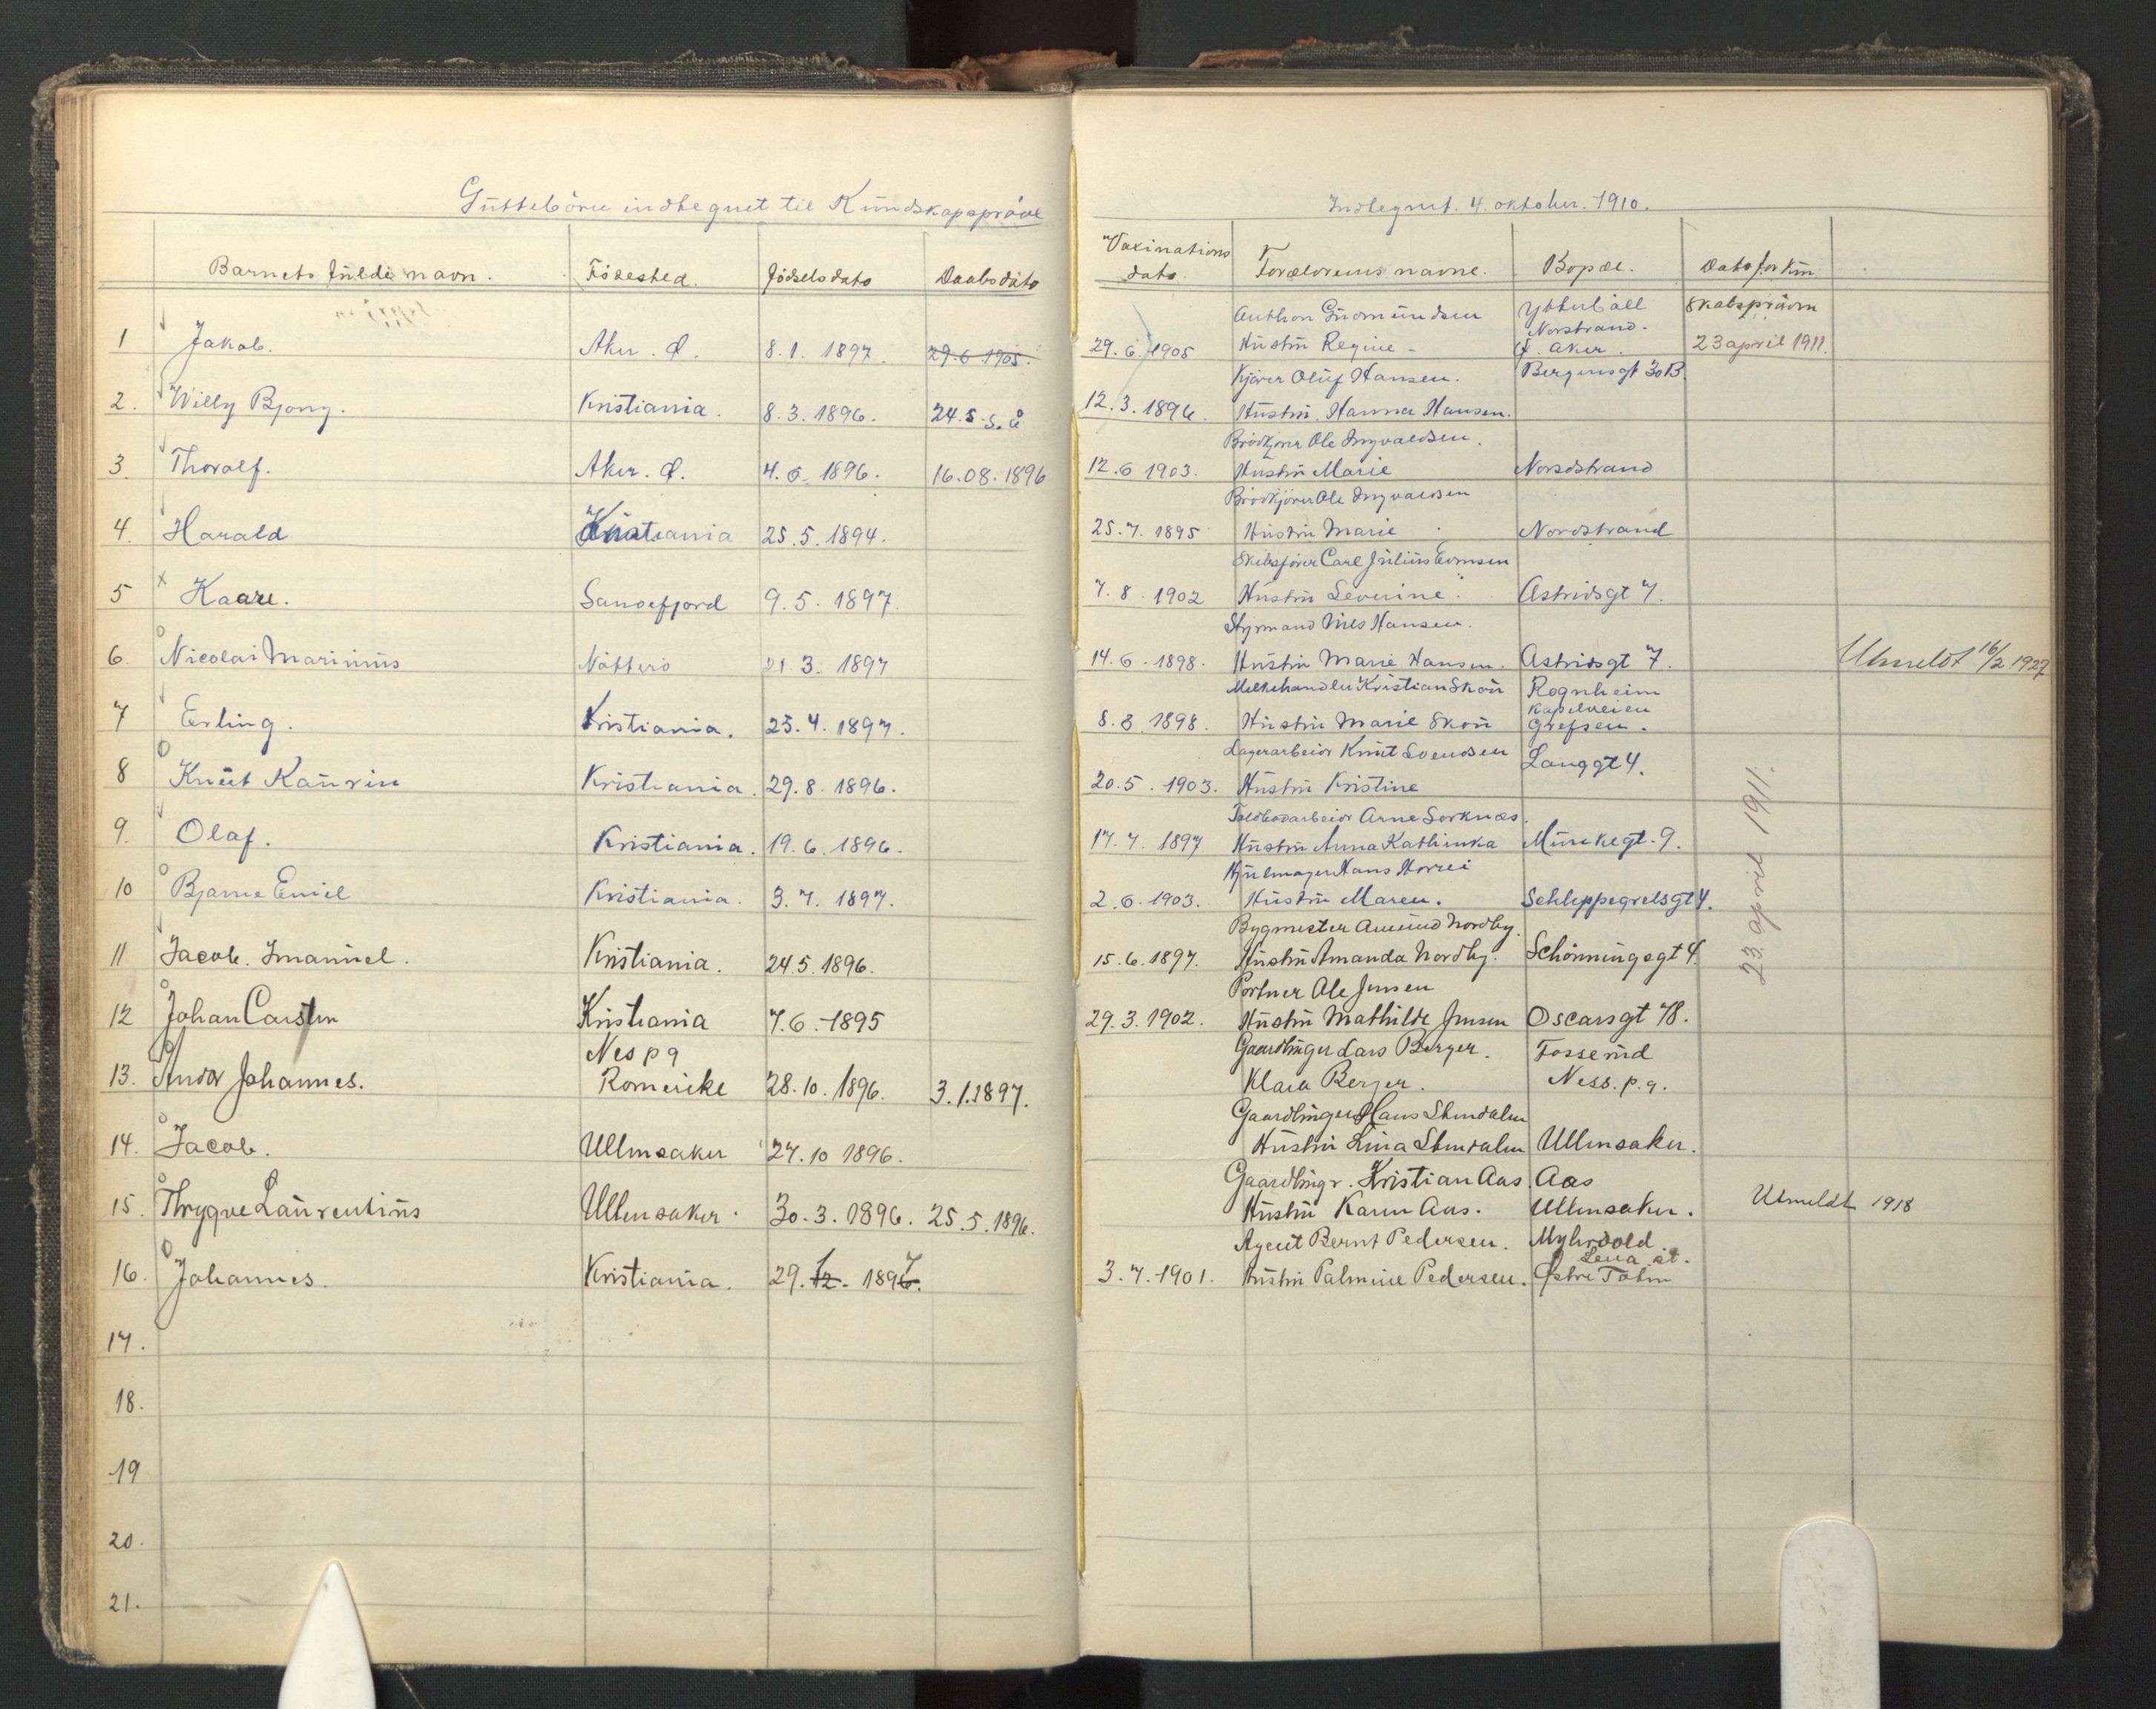 Guttebörn indtegnet til Kundskapspröve
Barnets fulde navn. Födested. Födselsdato Daabsdato
1 Jakob. Aker. Ö. 8.1.1897. 29.6 1905.
2. Willy Bjong. Kristiania. 8.3.1896. 24.5 s.å
3. Thoralf. Aker. Ö. 4.6.1896. 16.08.1896
4. Harald Kristiania 25.5.1894.
5 Kaare. Sandefjord 9.5.1897.
6. Nicolai Marinius Nötterö 21.3.1897
7 Erling. Kristiania. 25.4.1897.
8 Knut Kaurin Kristiania. 29.8.1896.
9. Olaf. Kristiania. 19.6.1896.
10 Bjarne Emil Kristiania. 3.7.1897.
11 Jacob. Imanuel. Kristiania. 24.5.1896.
12 Johan Carsten Kristiania 7.6.1895
Nes pa
13. Andor Johannes. Romerike 28.10.1896. 3.1.1897.
14. Jacob. Ullensaker 27.10 1896.
15. Thrygve Laurentius Ullensaker. 30.3.1896. 25.5.1896.
16. Johannes. Kristiania. 29.12.1896. 7
17.
18.
19
20.
21.
Indtegnet. 4. oktober. 1910.
Vaxinations
dato. Forældrenes navne. Bopæl. Dato for Kun-
skabspröven
Anthon Gudmundsen Ytterböll
Norstrand.
29.6.1905 Hustru Regine - Ö. Aker. 23 april 1911.
Kjörer Oluf Hansen. Bergensgt 30B.
12.3.1896. Hustru Hanna Hansen.
Brödkjörer Ole Ingvaldsen.
12.6 1903. Hustru Marie Nordstrand
Brödkjörer Ole Ingvaldsen
25.7.1895 Hustru Marie Nordstrand
Skibsförer Carl Julius Evensen
7.8.1902 Hustru Severine Astridsgt 7.
Styrmand Nils Hansen.
14.6.1898. Hustru Marie Hansen. Astridsgt 7. Utmeldt 16/2 1927
Melkehandler Kristian Skou Rognheim
Kapelveien
8.8.1898. Hustru Marie Skou Grefsen.
Lagerarbeider Knut Svendsen Langgt 4.
20.5.1903. Hustru Kristine
Toldbodarbeider Arne Sorknæs.
17.7.1897 Hustru Anna Kathinka Munkegt. 9.
Hjulmager Hans
2.6.1903. Hustru Maren. Schleppegrelsgt 4.
Bygmester Amund Nordby.
15.6.1897. Hustru Amanda Nordby. Schönningsgt 4.
23. april 1911.
Portner Ole Jensen
29.3.1902. Hustru Mathilde Jensen Oscarsgt 78.
Gaardbruger Lars Berger. Fosserud
Klara Berger. Ness. p. a.
Gaardbruger Hans Stendalen
Hustru Lina Stendalen Ullensaker.
Gaardbrugr. Kristian Aas. Aas
Hustru Karen Aas. Ullensaker. Utmeldt 1918
Agent Bernt Pedersen. Myhrvold
Lena st.
3.7.1901. Hustru Palmine Pedersen. Östre Toten